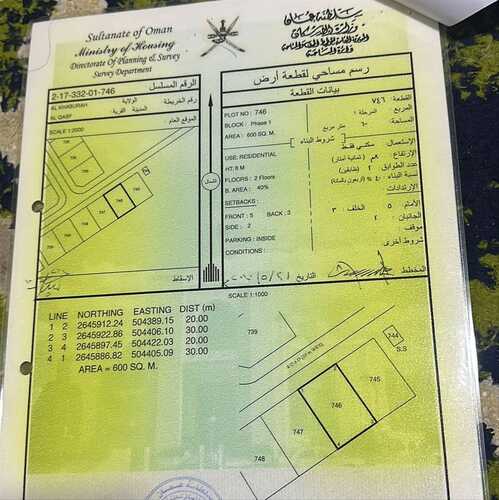 Sultanate of Oman
Ministry of Housing
Directorate of Planning & Survey
Survey Department
سلطنة عمان
2-17-332-01-746
الرقم المسلسل
AL KHABURAH
الولاية
رقم الخريطة
AL QASF
القرية
الموقع العام
SCALE 1:2000
745
746
747
رسم مساحي لقطعة أرض
بيانات القطعة
PLOT NO : 746
القطعة : ٧٤٦
BLOCK : Phase 1
المربع :
AREA : 600 SQ. M.
المساحة : ٦٠٠ متر مربع
شروط البناء
USE: RESIDENTIAL
الإستعمال : سكني فقط
HT: 8 M
الإرتفاع : ٨م (ثمانية أمتار)
FLOORS : 2 Floors
عدد الطوابق : ٢ (طابقين)
B. AREA : 40%
نسبة البناء : ٤٠٪ (أربعون بالمائة)
SETBACKS :
الإرتدادات :
FRONT : 5 BACK : 3
الأمام : ٥ الخلف : ٣
SIDE : 2
الجانبان : ٢
PARKING : INSIDE
موقف :
CONDITIONS :
شروط أخرى
شمال
الإسقاط
التاريخ
المخطط
SCALE 1:1000
LINE NORTHING EASTING DIST (m)
1 2 2645912.24 504389.15 20.00
2 3 2645922.86 504406.10 30.00
3 4 2645897.45 504422.03 20.00
4 1 2645886.82 504405.09 30.00
AREA = 600 SQ. M.
739
744
S.S
745
746
747
748